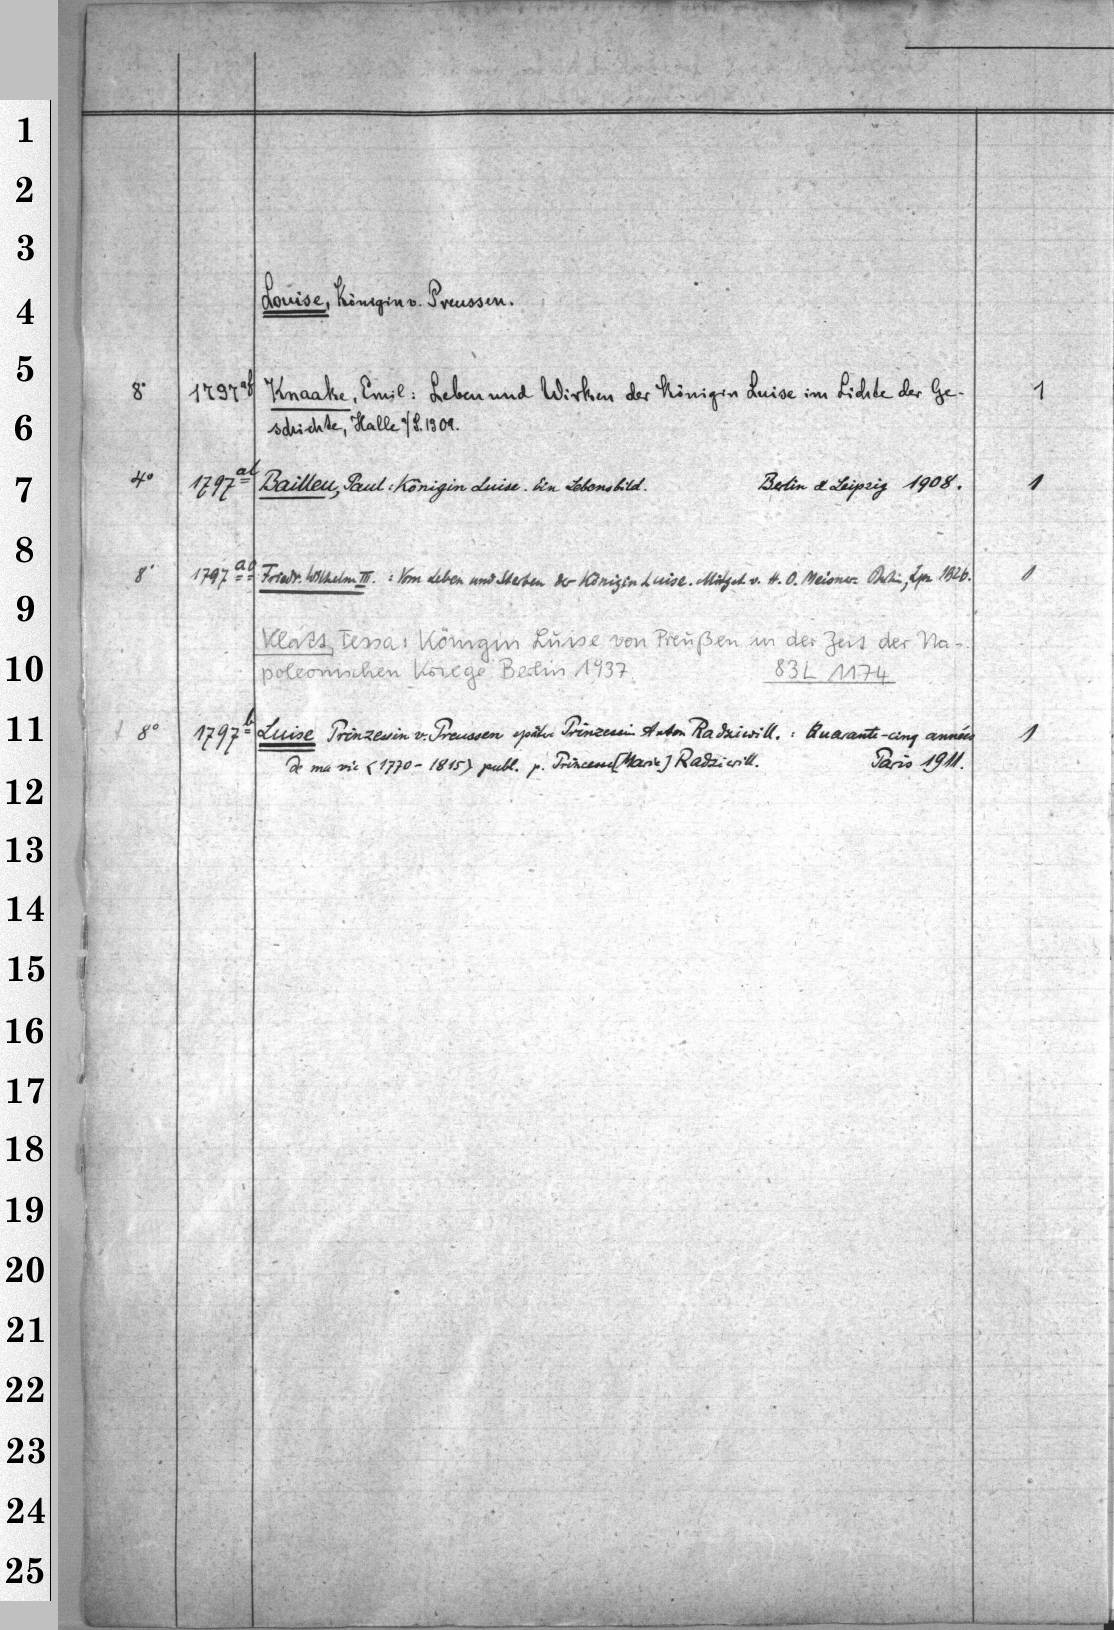 1
2
3
4
5
6
7
8
9
10
11
12
13
14
15
16
17
18
19
20
21
22
23
24
25
Louise, Königin v. Preussen.
8° 1797 af Knaake, Emil: Leben und Wirken der Königin Luise im Lichte der Ge- 1
schichte, Halle a/S. 1909.
4° 1797 al Bailleu, Paul: Königin Luise. Ein Lebensbild. Berlin & Leipzig 1908. 1
8° 1797 ao Friedr. Wilhelm III.: Vom Leben und Sterben der Königin Luise. Mitget. v. H. O. Meisner. Berlin, Lpz. 1926. 1
Klatt, Tessa: Königin Luise von Preußen in der Zeit der Na-
poleonischen Kriege Berlin 1937 83L 1174
8° 1797 b Luise Prinzessin v. Preussen später Prinzessin Anton Radziwill.: Quarante-cinq années 1
de ma vie <1770-1815> publ. p. Princesse [Marie] Radziwill. Paris 1911.